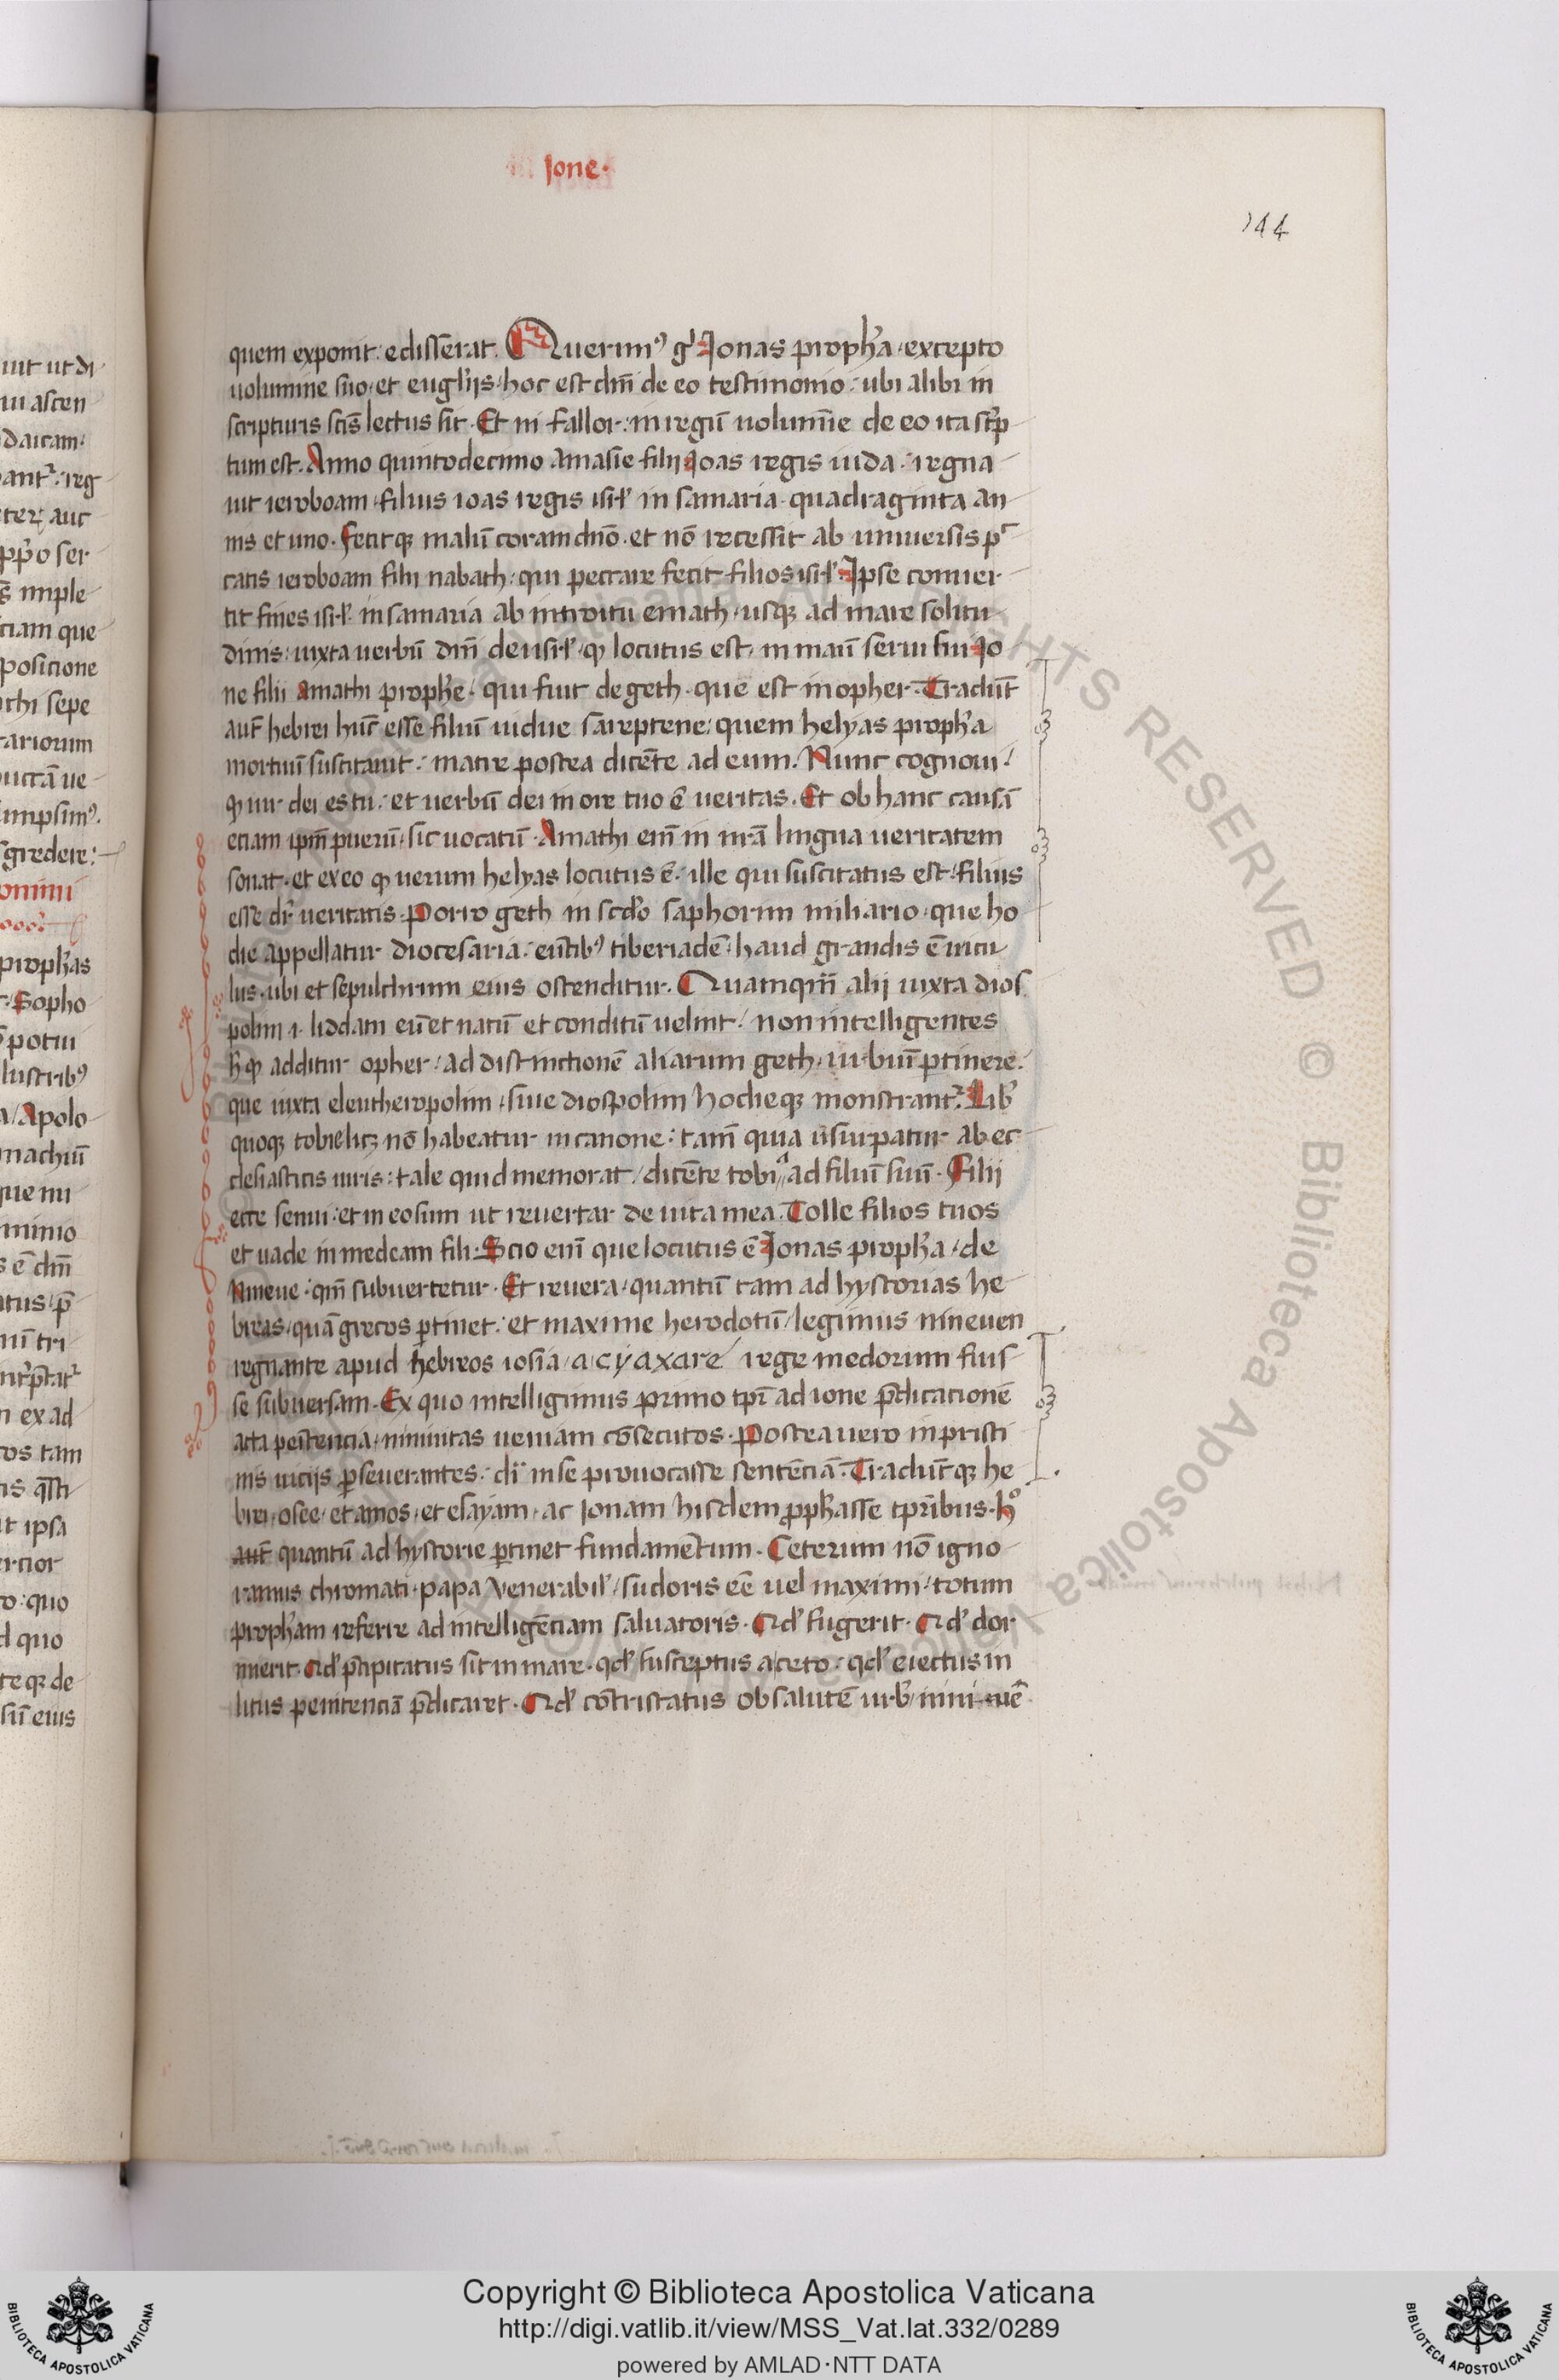 Ione·
144
quem exponit: edisserat. Querim⁹ gͥ Ionas prophꝫa / excepto
uolumine suo· et euglʼijs / hoc est dn̄i de eo testimonio: ubi alibi in
scripturis scīs lectus sit. Et ni fallor: in regū uolumīe de eo ita scͥp
tum est. Anno quintodecimo Amasie filij Ioas regis iuda: regna
uit ieroboam filius ioas regis isrl̓ in samaria· quadraginta an
nis et uno. Fecitqꝫ malū coram dn̄o· et nō recessit ab uniuersis pc
catis ieroboam filii nabath: qui peccare fecit filios isrl̓. Ipse conuer
tit fines isrl̓ in samaria ab introitu emath / usqꝫ ad mare solitu
dinis: iuxta uerbū dn̄i dei isrl̓ / qͦ locutus est / in manū serui sui Io
ne filii Amathi prophꝫe / qui fuit de geth· que est in opher. Tradūt
aut̄ hebrei hūc esse filiū uidue sareptene: quem helyas prophꝫa
mortuū suscitauit: matre postea dicēte ad eum. Nunc cognoui /
qͦ uir dei es tu: et uerbū dei in ore tuo ē ueritas. Et ob hanc causā
etiam ipm̄ puerū / sic uocatū. Amathi enī in nrā lingua ueritatem
sonat· et ex eo qͦ uerum helyas locutus ē: ille qui suscitatus est / filius
esse dr̄ ueritatis. Porro geth in scd̓o saphorim miliario· que ho
die appellatur diocesaria: eūtib⁹ tiberiadē: haud grandis ē uicu
lus· ubi et sepulchrum eius ostenditur. Quamqm̄ alij iuxta dios
polim .i. liddam eū et natū et conditū uelint / non intelligentes
h̓ qͦ additur opher / ad distinctionē aliarum geth / urbiū ptinere:
que iuxta eleutheropolim / siue diospolim hodieqꝫ monstrant᷑. Lib᷑
quoqꝫ tobie licꝫ nō habeatur in canone: tam̄ quia usurpatur ab ec
clesiasticis uiris: tale quid memorat / dicēte tobia ad filiū suū. Filii
ecce senui: et in eo sum ut reuertar de uita mea. Tolle filios tuos
et uade in medeam fili: Scio enī que locutus ē Ionas prophꝫa / de
Nineue: qm̄ subuertetur. Et reuera / quantū tam ad hystorias he
breas / quā grecos ptinet: et maxime herodotū / legimus nineuen
regnante apud hebreos iosia / a cyaxare rege medorum fuis
se subuersam. Ex quo intelligimus primo tpr̄ ad ione p̄dicationē
acta penītencia / niniuitas ueniam cōsecutos. Postea uero in pristi
nis uicijs pseuerantes: dī in se prouocasse sentēciā. Tradūtqꝫ he
brei / osee / et amos / et esayam / ac Ionam hisdem pphꝫasse tpr̄ibus. hͦ
aut̄ quantū ad hystorie ptinet fundamētum. Ceterum nō igno
ramus chromati papa Venerabil̓ / sudoris eē uel maximi / totum
prophꝫam referre ad intelligēciam saluatoris. Qd̓ fugerit. Qd̓ dor
mierit. Qd̓ p̄cipitatus sit in mare. qd̓ susceptus a ceto: qd̓ eiectus in
litus penitenciā p̄dicaret. Qd̓ cōtristatus ob salutē urb᷑ nini-uē
Copyright © Biblioteca Apostolica Vaticana
http://digi.vatlib.it/view/MSS_Vat.lat.332/0289
powered by AMLAD·NTT DATA
BIBLIOTECA APOSTOLICA VATICANA
BIBLIOTECA APOSTOLICA VATICANA